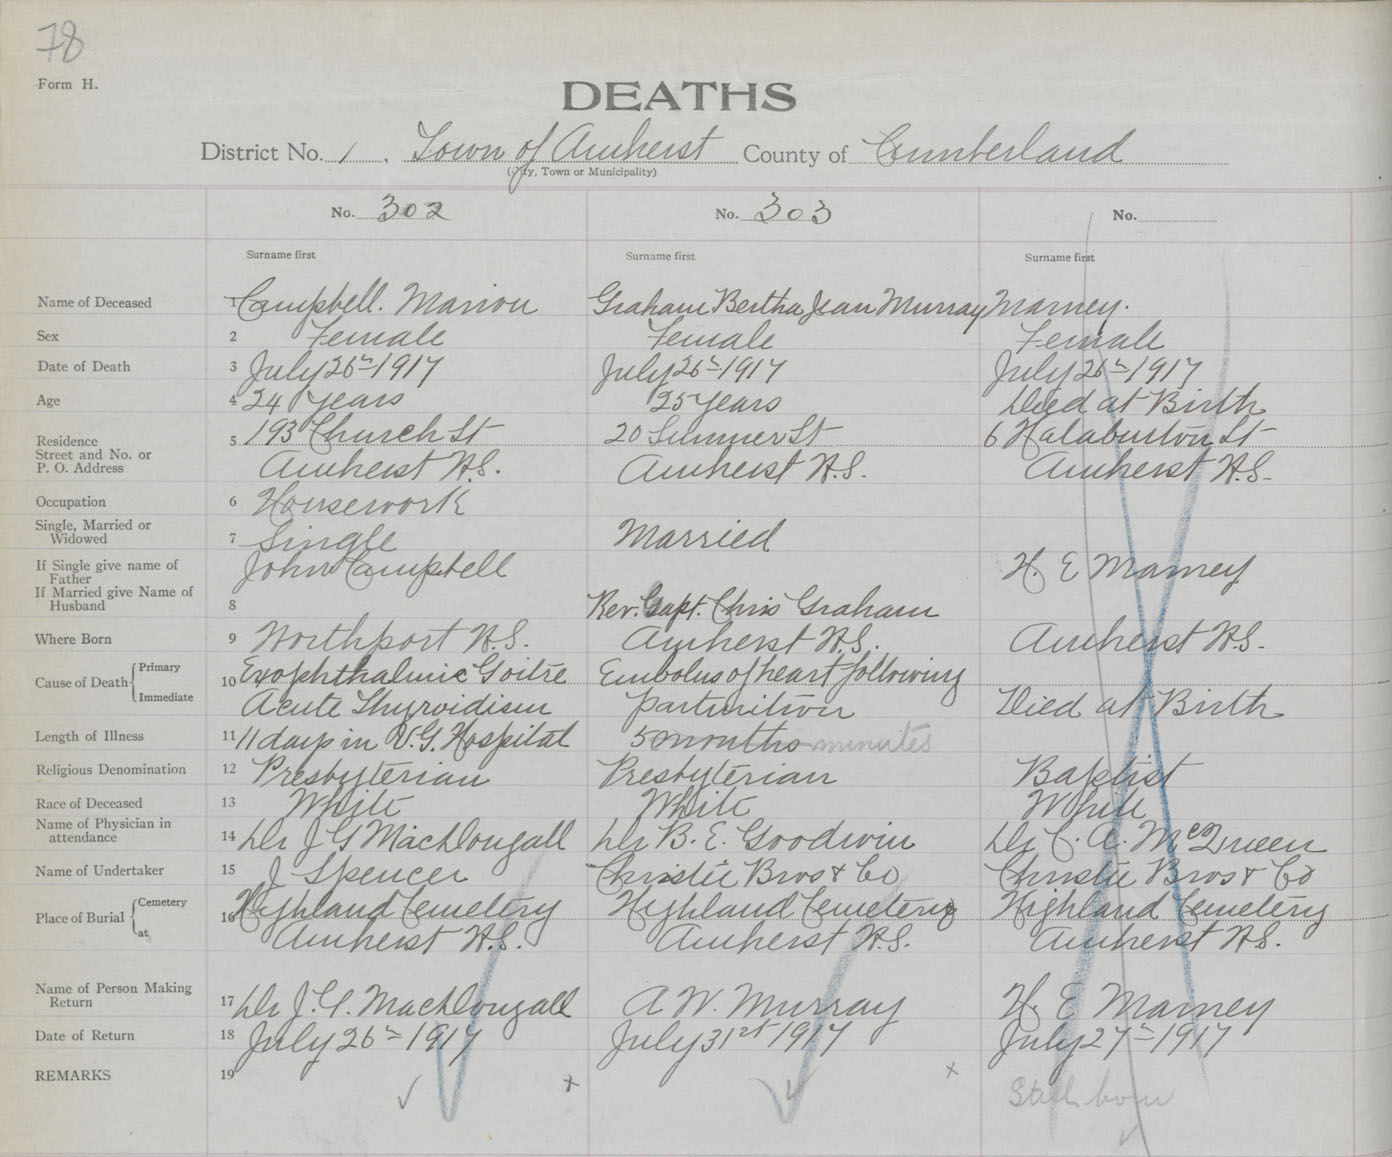 78
Form H.
DEATHS
District No. 1. Town of Amherst County of Cumberland
(City, Town or Municipality)
No. 302 No. 303 No.
Surname first Surname first Surname first
Name of Deceased 1 Campbell. Marion Graham Bertha Jean Murray Marney.
Sex 2 Female Female Female
Date of Death 3 July 26th 1917 July 26th 1917 July 26th 1917
Age 4 24 years 25 years Died at Birth
Residence 5 193 Church St 20 Summer St 6 Halaburton St
Street and No. or
P. O. Address Amherst N.S. Amherst N.S. Amherst N.S.
Occupation 6 Housework
Single, Married or
Widowed 7 Single Married
If Single give name of
Father John Campbell H. E Marney
If Married give Name of
Husband 8 Rev. Capt. Chris Graham
Where Born 9 Northport N.S. Amherst N.S. Amherst N.S.
Cause of Death Primary 10 Exophthalmic Goitre Embolus of heart following
Immediate Acute Thyroidism parturition Died at Birth
Length of Illness 11 11 days in V.G. Hospital 5 months minutes
Religious Denomination 12 Presbyterian Presbyterian Baptist
Race of Deceased 13 White White White
Name of Physician in
attendance 14 Dr J G MacDougall Dr B. E. Goodwin Dr C. A. McQueen
Name of Undertaker 15 J Spencer Christie Bros & Co Christie Bros & Co
Place of Burial Cemetery 16 Highland Cemetery Highland Cemetery Highland Cemetery
at Amherst N.S. Amherst N.S. Amherst N.S.
Name of Person Making
Return 17 Dr J. G. MacDougall A W. Murray H. E Marney
Date of Return 18 July 26th 1917 July 31st 1917 July 27th 1917
REMARKS 19 x x Still born